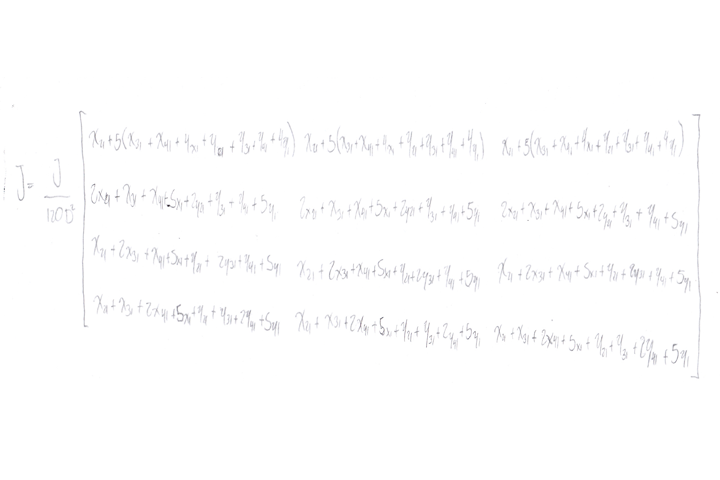 J = J/120D² [ x₂₁+5(x₃₁+x₄₁+4x₁+y₂₁+y₃₁+y₄₁+4y₁) x₂₁+5(x₃₁+x₄₁+4x₁+y₂₁+y₃₁+y₄₁+4y₁) x₂₁+5(x₃₁+x₄₁+4x₁+y₂₁+y₃₁+y₄₁+4y₁)
2x₂₁+x₃₁+x₄₁+5x₁+2y₂₁+y₃₁+y₄₁+5y₁ 2x₂₁+x₃₁+x₄₁+5x₁+2y₂₁+y₃₁+y₄₁+5y₁ 2x₂₁+x₃₁+x₄₁+5x₁+2y₂₁+y₃₁+y₄₁+5y₁
x₂₁+2x₃₁+x₄₁+5x₁+y₂₁+2y₃₁+y₄₁+5y₁ x₂₁+2x₃₁+x₄₁+5x₁+y₂₁+2y₃₁+y₄₁+5y₁ x₂₁+2x₃₁+x₄₁+5x₁+y₂₁+2y₃₁+y₄₁+5y₁
x₂₁+x₃₁+2x₄₁+5x₁+y₂₁+y₃₁+2y₄₁+5y₁ x₂₁+x₃₁+2x₄₁+5x₁+y₂₁+y₃₁+2y₄₁+5y₁ x₂₁+x₃₁+2x₄₁+5x₁+y₂₁+y₃₁+2y₄₁+5y₁ ]